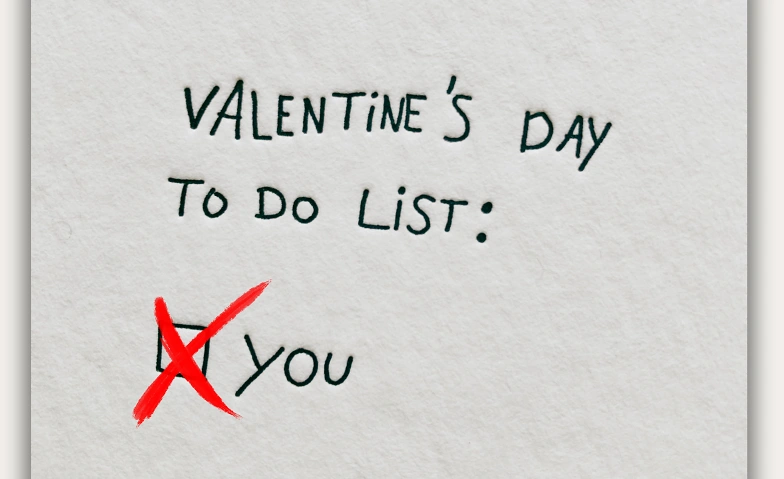 VALENTiNE'S DAY
TO DO LiST:
YOU